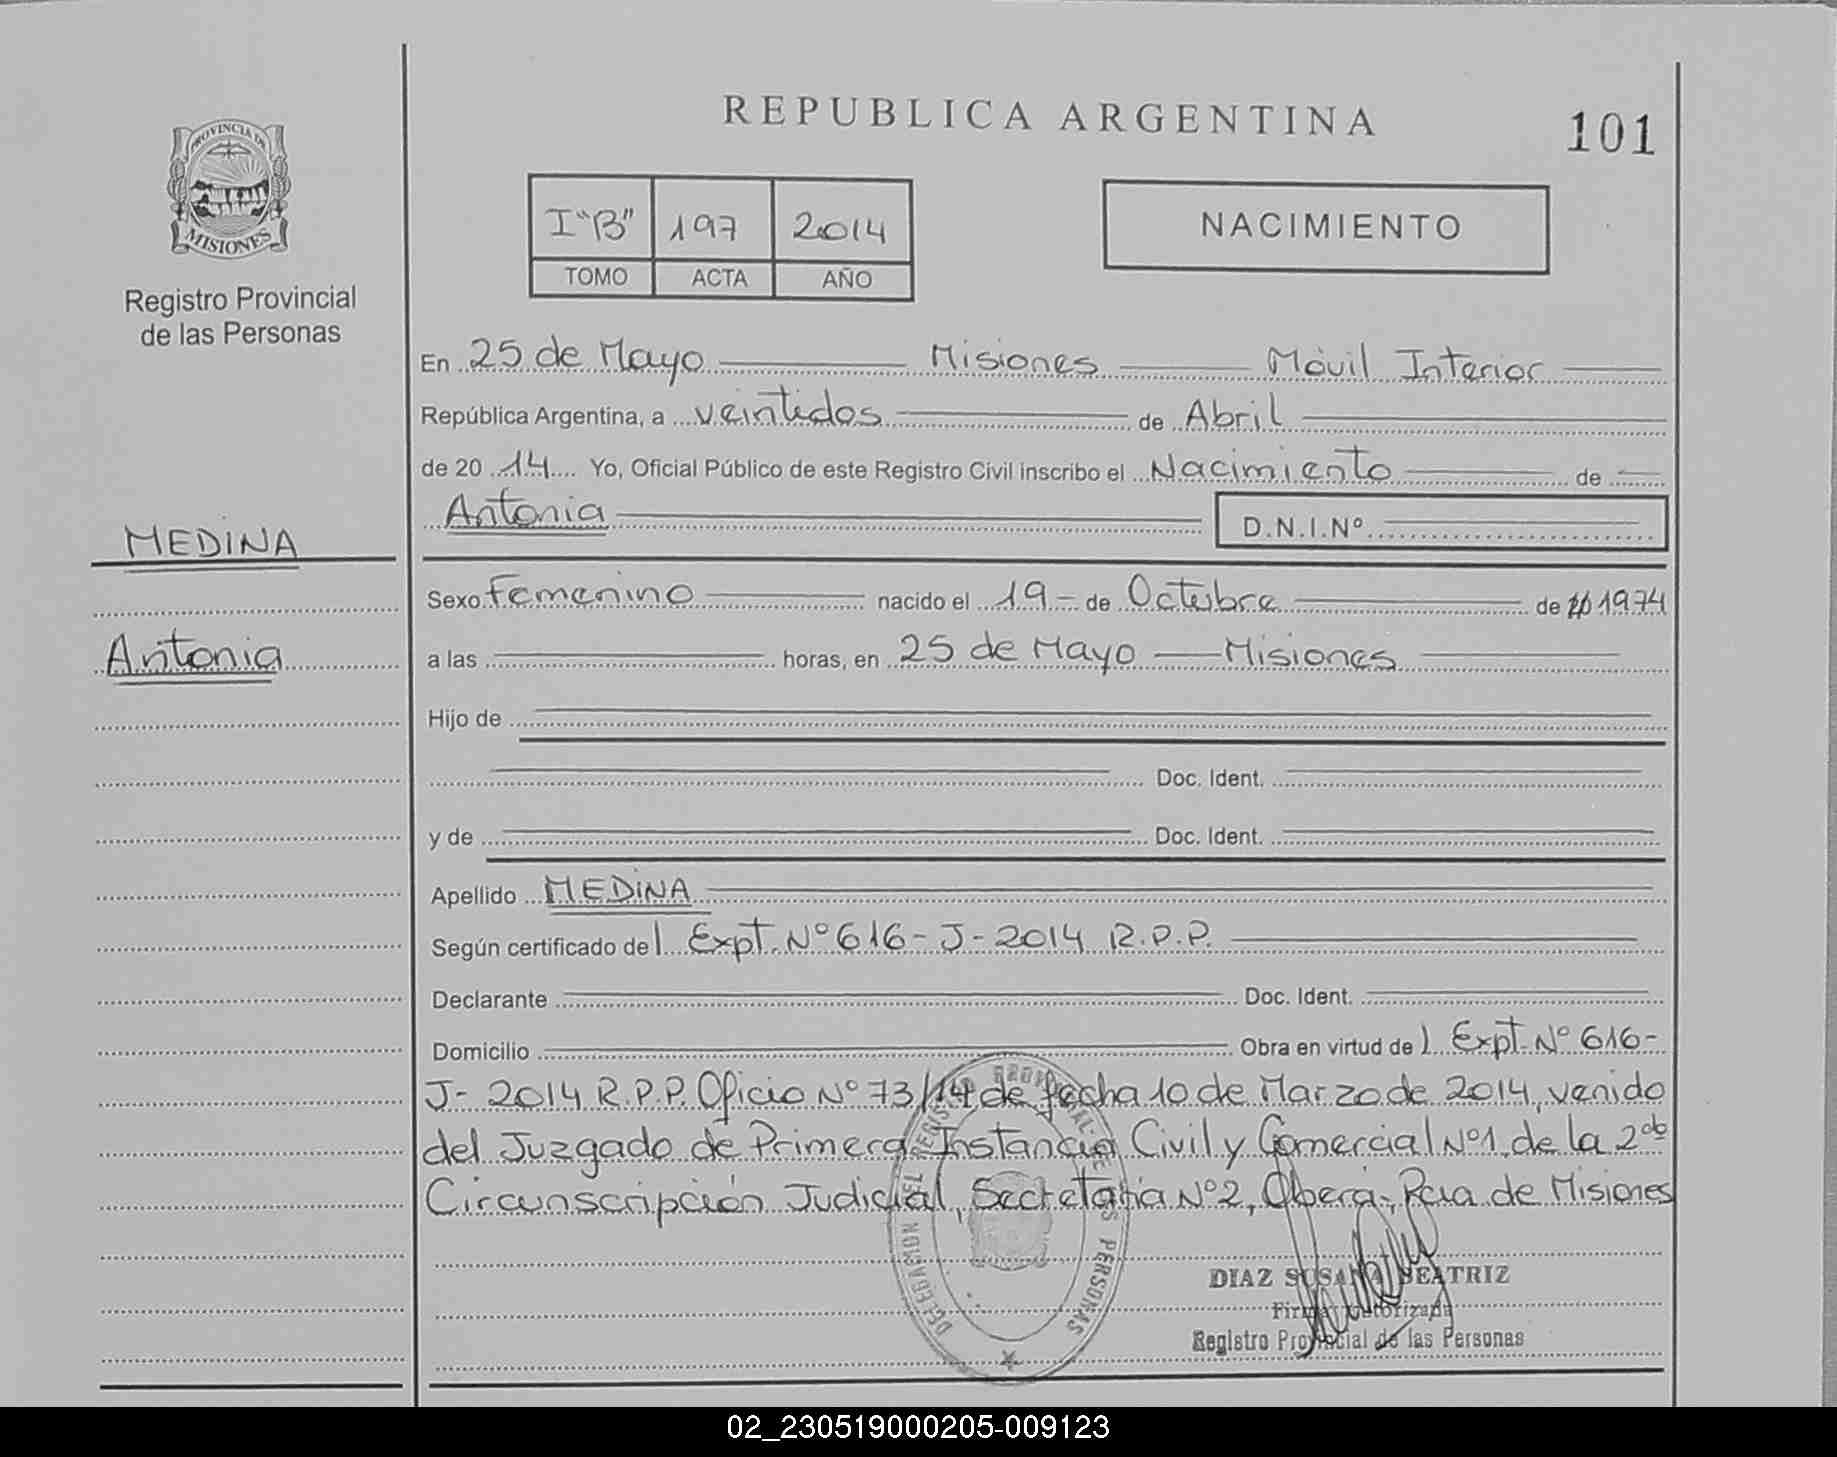 REPUBLICA ARGENTINA
101
PROVINCIA DE
MISIONES
Registro Provincial
de las Personas
I "B" 197 2014
TOMO ACTA AÑO
NACIMIENTO
En 25 de Mayo Misiones Móvil Interior
República Argentina, a veintidos de Abril
de 20 14 Yo, Oficial Público de este Registro Civil inscribo el Nacimiento de
Antonia D.N.I.Nº
MEDINA
Antonia
Sexo Femenino nacido el 19 - de Octubre de 1974
a las horas, en 25 de Mayo Misiones
Hijo de
Doc. Ident.
y de Doc. Ident.
Apellido MEDINA
Según certificado del Expt. Nº 616 - J - 2014 R.P.P.
Declarante Doc. Ident.
Domicilio Obra en virtud del Expt. Nº 616 -
J - 2014 R.P.P. Oficio Nº 73/14 de fecha 10 de Marzo de 2014, venido
del Juzgado de Primera Instancia Civil y Comercial Nº1, de la 2da
Circunscripción Judicial, Secretaria Nº2, Oberá, Pcia de Misiones
DELEGACION DEL REGISTRO PROVINCIAL DE LAS PERSONAS
DIAZ SUSANA BEATRIZ
Firma Autorizada
Registro Provincial de las Personas
02_230519000205-009123